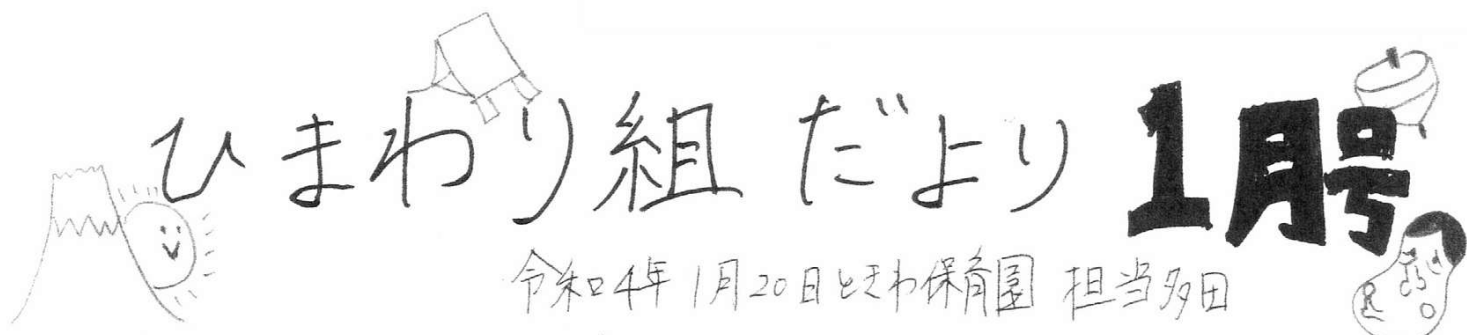 ひまわり組 だより 1月号
令和4年 1月20日 ときわ保育園 担当 多田